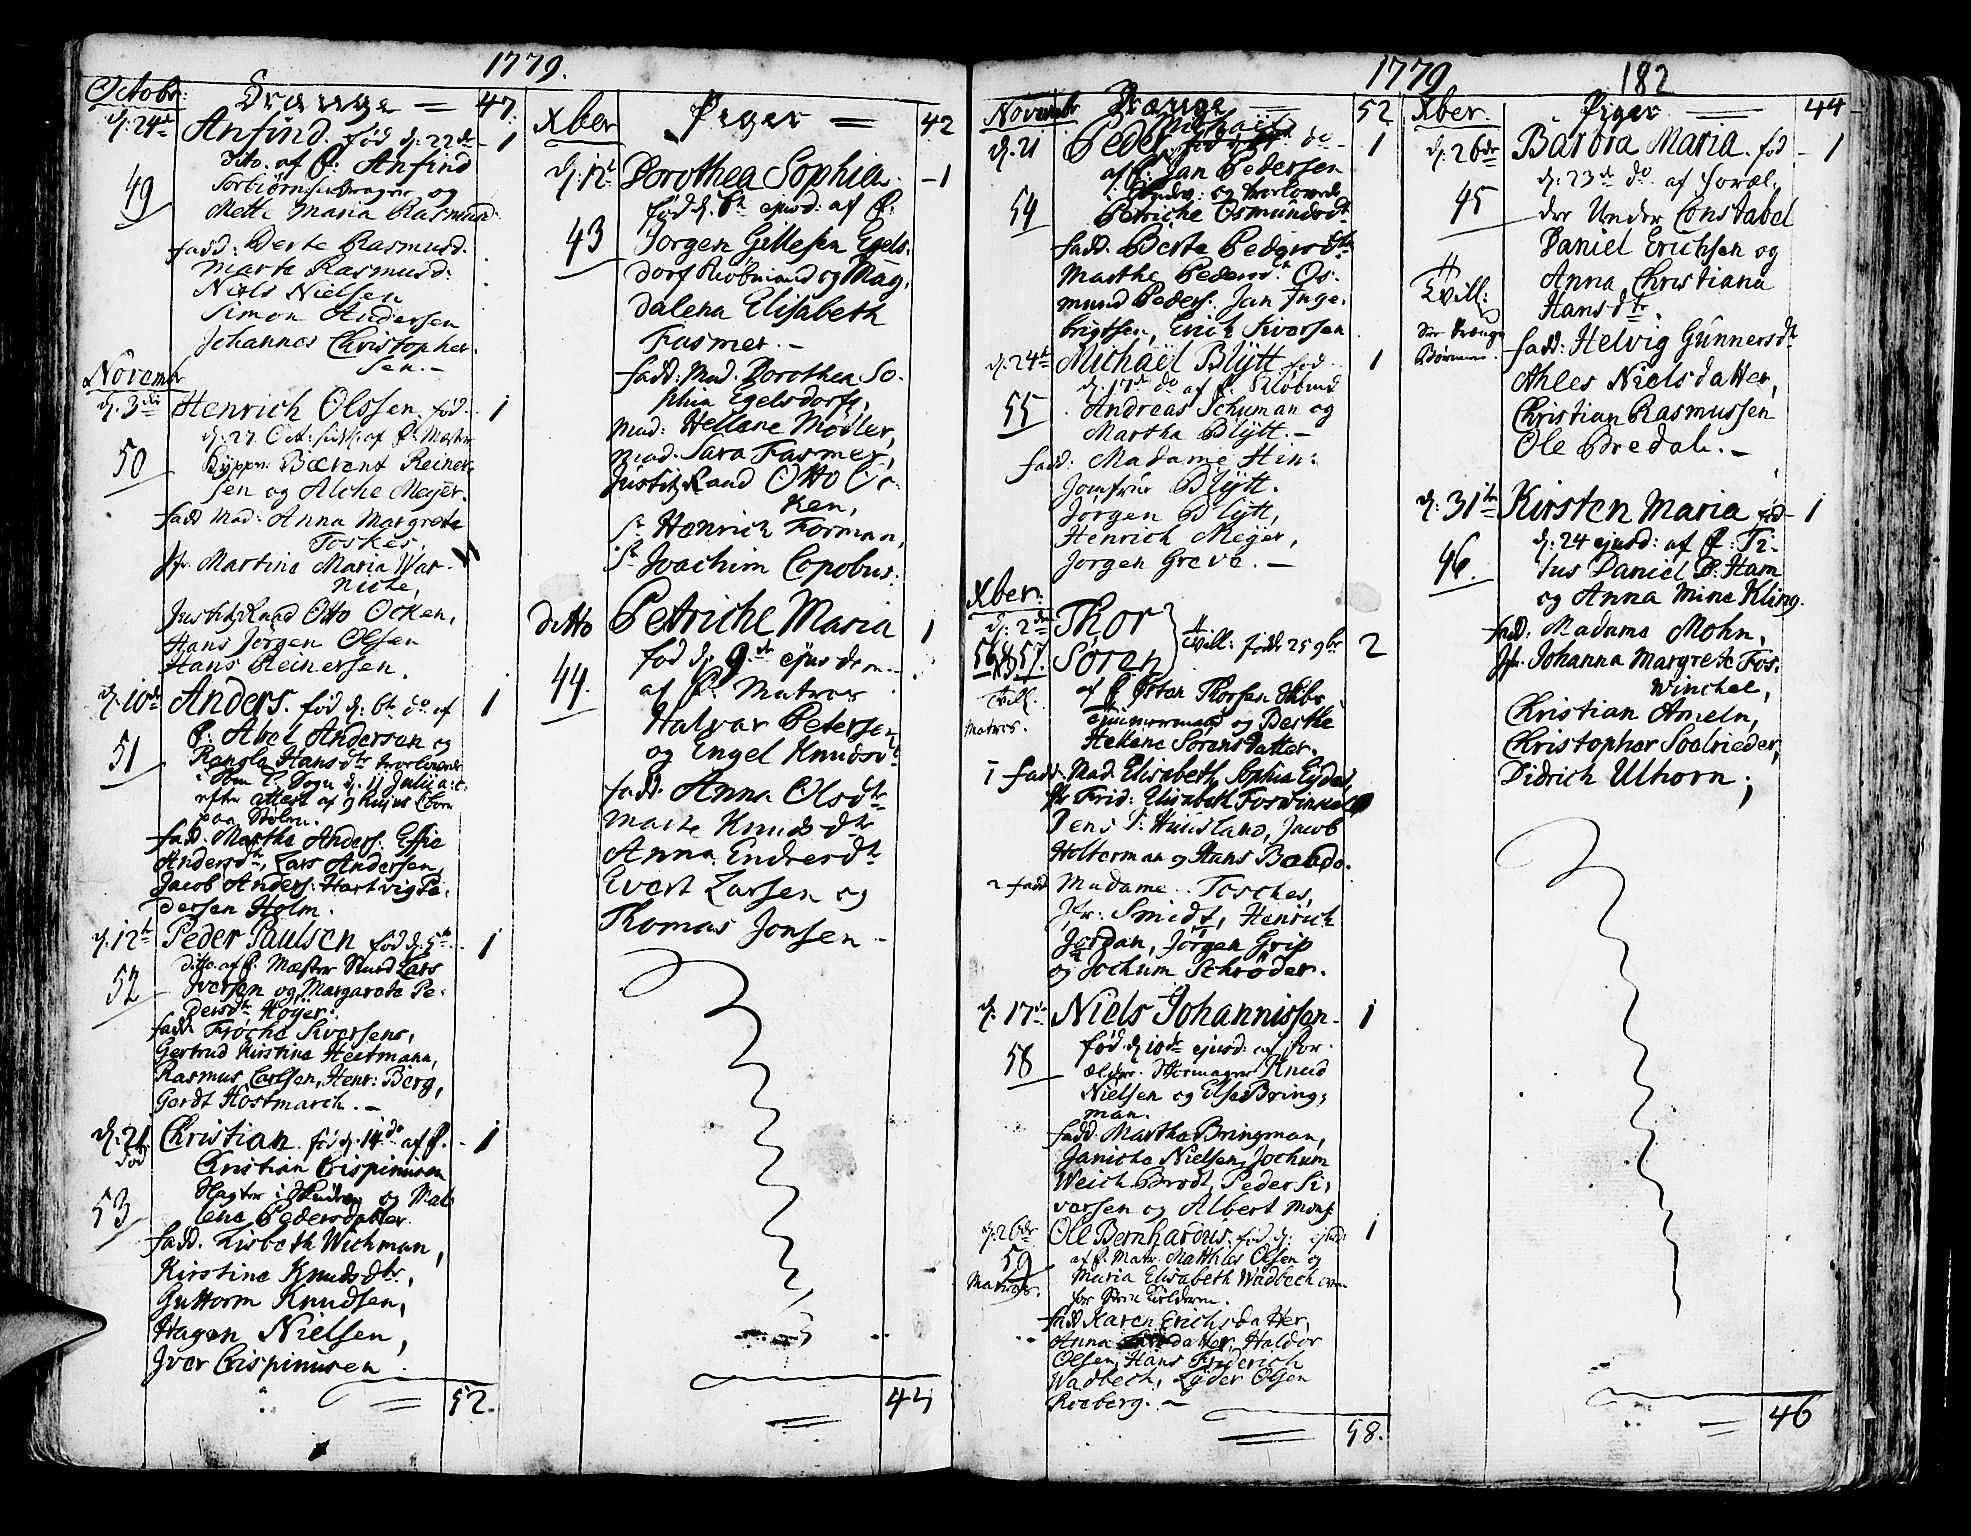 1779.
Octobr:
Drænge = 47.
d: 24de Anfind. fød d: 22de - 1
dito. af F: Anfind
49 Torbiørnsen Dragner og
Mette Maria Rasmusd:
fadd: Berte Rasmusd.
Marte Rasmusd:
Niels Nielsen
Simon Andersen
Johannes Christopher-
sen. -
Novembr
d. 3die Henrich Olssen fød. 1
d. 27 Oct: sidst. af F: Mæster
50 Bærent Reiner-
sen og Alche Meyer.
fadd Mad: Anna Margrete
Foskes,
Jfr. Martina Maria War-
niche,
Justitz Raad Otto Ocken,
Hans Jörgen Olsen
Hans Reinersen.
d. 10de Anders. fød d: 6te do af 1
F: Abel Andersen og
51 Rangla Hansdtr trolovede
i Sogn d. 11 Julii a: c:
efter attest af
paa Stolen.
fadd. Martha Anders: Effie
Andersdtr, Lars Andersen,
Jacob Anders: Hartvig Pe-
dersen Holm.
d. 12te Peder Paulsen fød d: 5te - 1
ditto. af F: Mæster Knud Lars
52 Iversen og Margarete Pe-
dersdtr Höyer.
fadd. Frøche Siversens,
Gertrud Kirstina Heitmann,
Rasmus Carlsen, Henr: Berg,
Gerdt Hostmarch. -
d. 21 Christian fød d. 14de af F. - 1
død
Christian Crispinusen
Hagter i og Mat
53 lena Pedersdatter.
fadd. Lisbeth Wichman,
Kirstina Knudsdtr,
Guttorm Knudsen,
Hagen Nielsen,
Iver Crispinusen
52.
Xber Piger = 42
d: 12te Dorothea Sophia. - 1
fød d. 6te ejusd: af F:
43 Jorgen Gillesen Egels-
dorf Kiøbmand og Mag-
dalena Elisabeth
Fasmer. -
fadd: Mad. Dorothea So-
phia Egelsdorfs,
Mad: Hellene Modler,
Mad: Sara Fasmer,
Justitz Raad Otto Oc-
ken,
Sr. Henrich Forman,
Sr. Joachim Copobus.
ditto Petriche Maria 1
fød d. 9de ejusdem
44. af F. Matros
Halvar Petersen
og Engel Knudsdtr
fadd. Anna Olsdtr
Marte Knudsdtr
Anna Endresdtr
Evert Larsen og
Thomas Jonsen -
44
1779 182
Novembr Drænge 52
d. 21 Peder Michael do - 1
af F: Jan Pedersen
og trolovede
54 Petriche Osmundsdtr
fadd. Berte Pedersdtr
Marthe Pedersd. Os-
mund Peders. Jan Inge-
brigtsen, Erich Siversen
d. 24de Michaël Blÿtt fød 1
d. 17de do af F. Kiøbmd
55 Andreas Schuman og
Martha Blÿtt. -
fadd. Madame Hin:
Jomfrue Blÿtt.
Jörgen Blÿtt,
Henrich Meÿer,
Jørgen Greve. -
Xber.
d. 2den Thor
56 & 57. Søren } Tvill: fødde 25 9br 2
Tvill. af F Østen Thorsen Skibs-
Matros. tømmermand og Berthe
Hellene Sörensdatter.
1 fadd. Mad. Elisabeth Sophia Eyde,
Jfr Frid: Elisabeth Foswinckel
Jens P: Huusland, Jacob
Holterman og Hans Bænde.
2 fadd Madame Tosches,
Jfr: Smidt, Henrich
Jordan, Jörgen Grip
og Jochum Schrøder.
d. 17de Niels Johannissen - 1
fød d 10de ejusd: af For-
58 ældre. Skomager Knud
Nielsen og Else Bring-
man.
fadd. Martha Bringman,
Janicha Nielsen, Jochum
Weich Brodt, Peder Si-
versen og Albert Monss
d. 26de Ole Bernhardus. fød d: ejusd: 1
59 af F. Matr. Matthias Olsen og
Matros. Maria Elisabeth Wadbech
fadd Karen Erichsdatter,
Anna datter, Haldor
Olsen, Hans Friderich
Wadbech, Lÿder Olsen
Roeberg. -
58.
Xber. Piger 44 -
d. 26de Barbra Maria. fød - 1
d. 23de do af foræl-
45 dre Under Constabel
Daniel Erichsen og
Tvill: Anna Christiana
Hansdtr.
fadd: Helvig Gunnersdtr
Athles Nielsdatter,
Christian Rasmussen
Ole Bredal. -
d. 31te Kirsten Maria fød - 1
d. 24 ejusd: af F: Ti-
46. tus Daniel P: Ham
og Anna Mina Kling.
fadd. Madame Mohn,
Jfr. Johanna Margrete Fos-
winckel,
Christian Ameln,
Christopher Soelrieder,
Didrich Ulhorn;
46